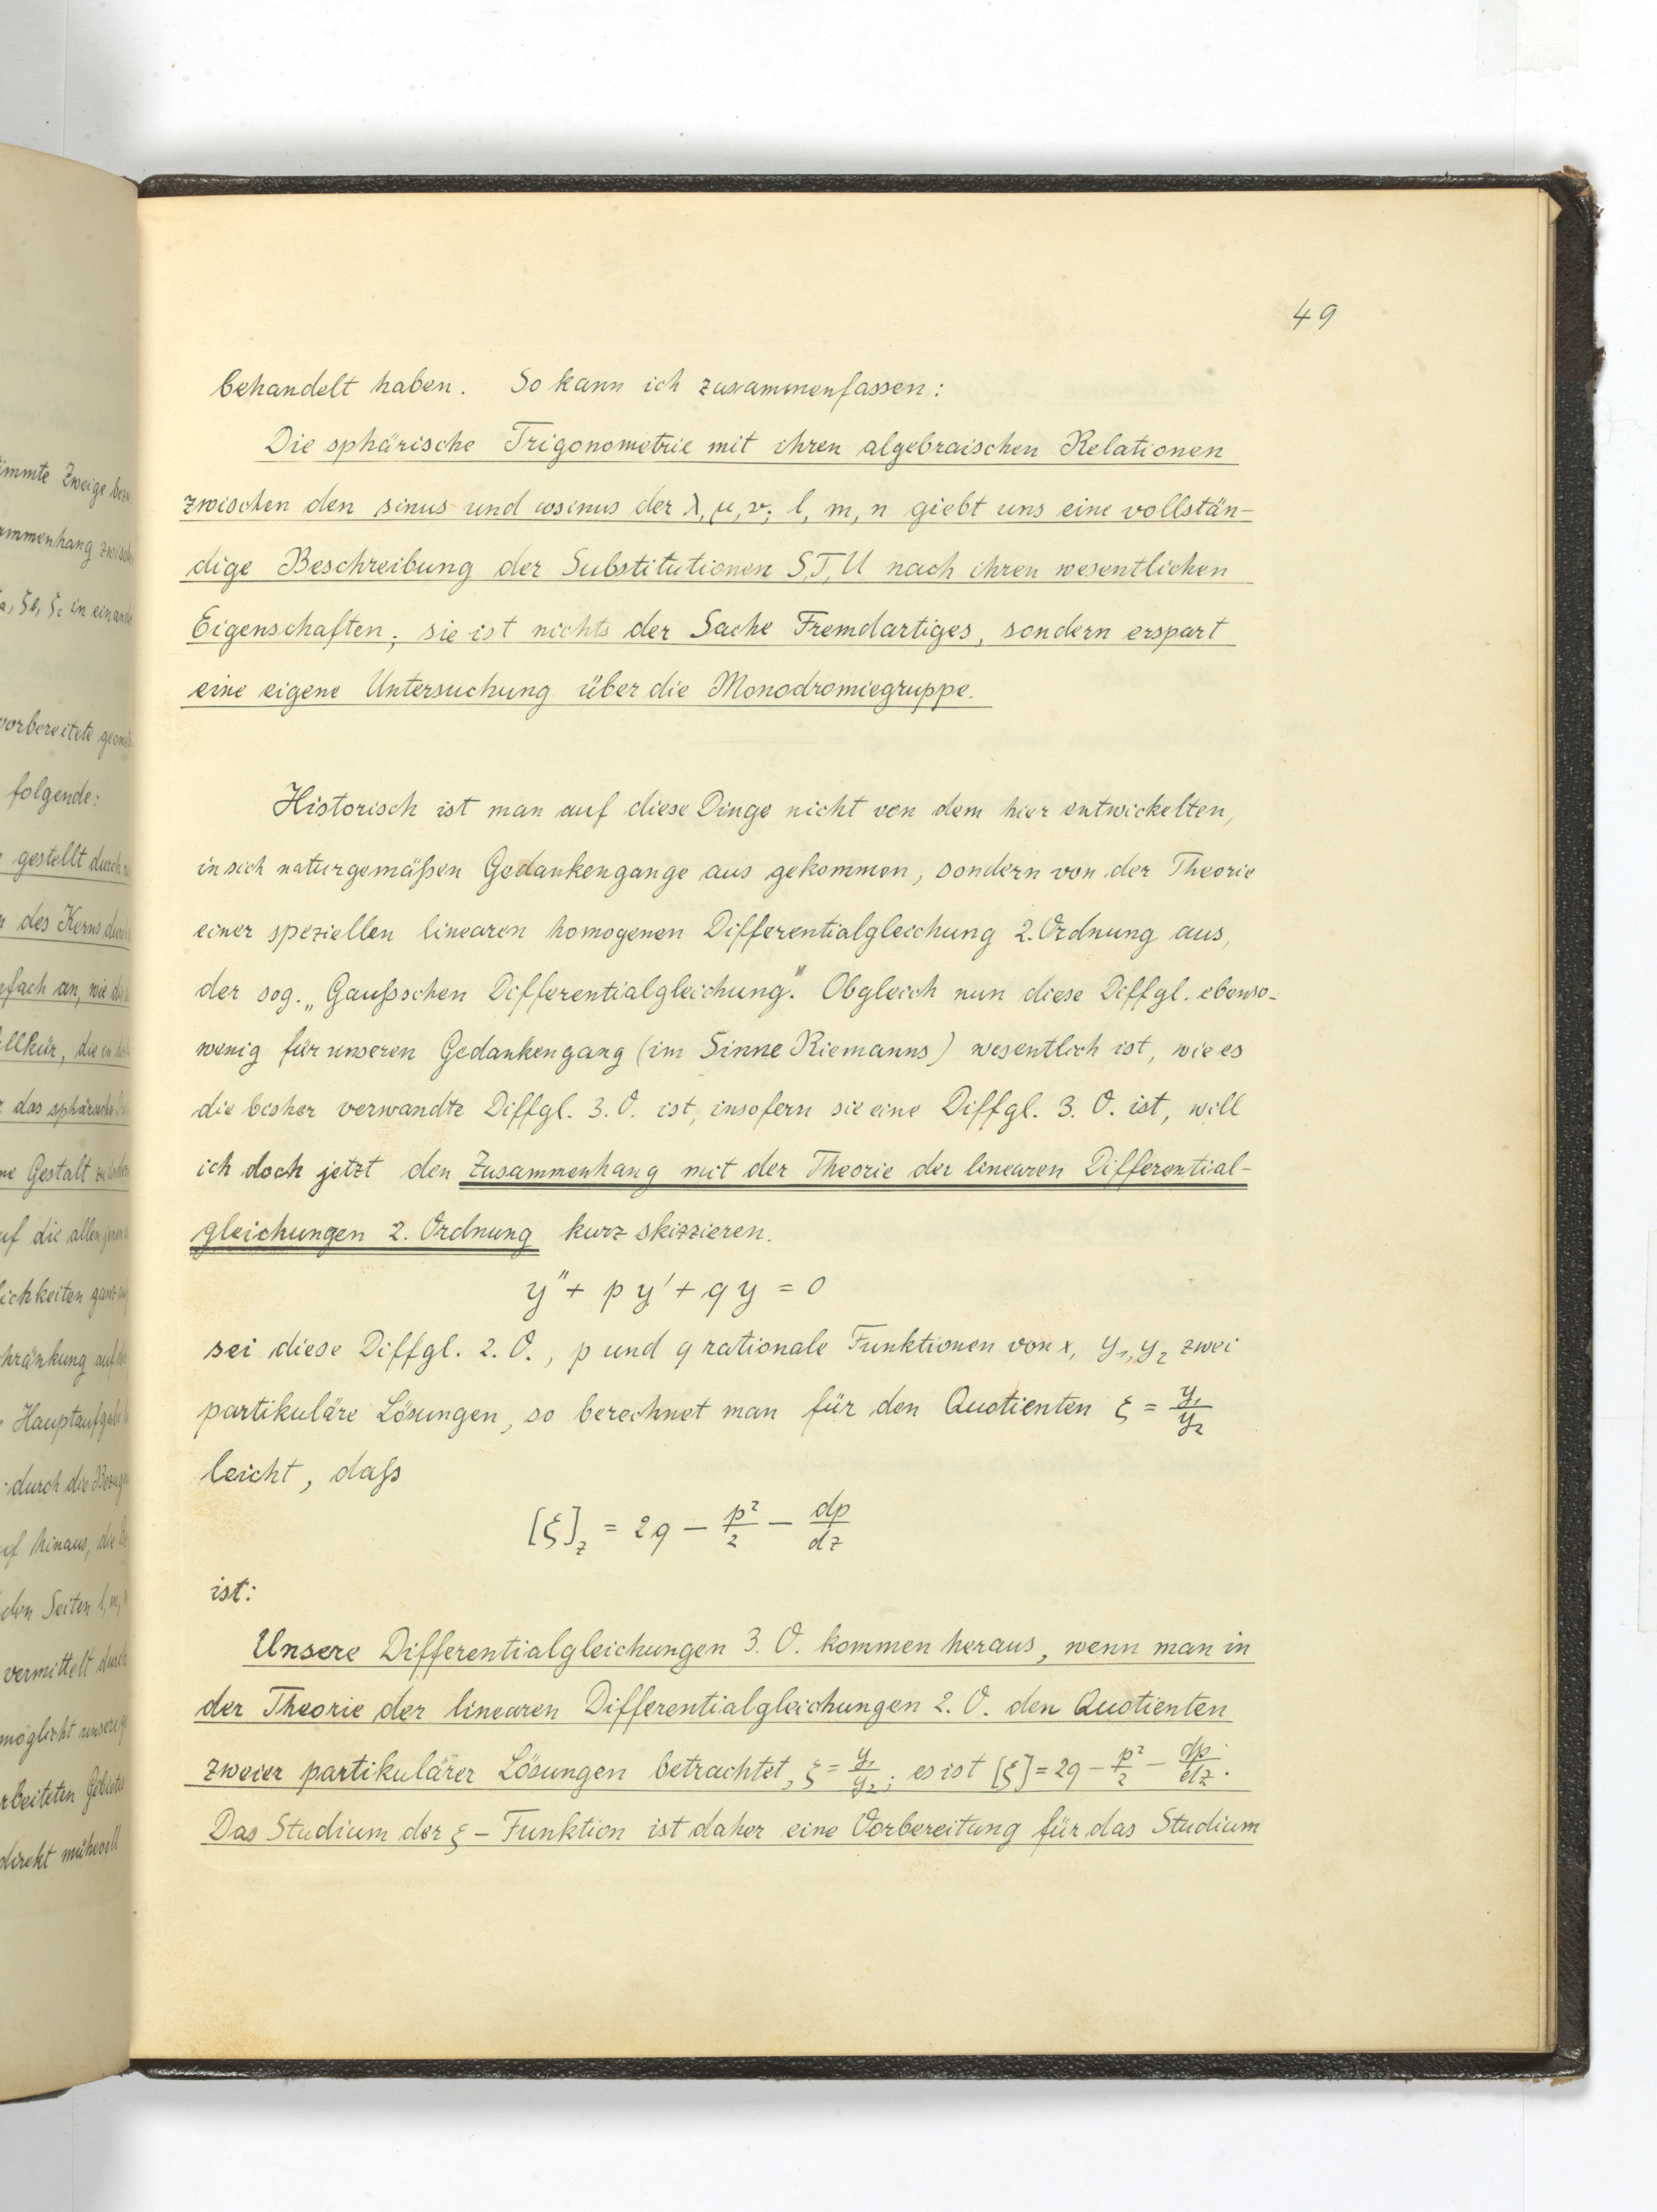 49
behandelt haben. So kann ich zusammenfassen:
Die sphärische Trigonometrie mit ihren algebraischen Relationen
zwischen den sinus und cosinus der λ, μ, ν; l, m, n giebt uns eine vollstän-
dige Beschreibung der Substitutionen S, T, U nach ihren wesentlichen
Eigenschaften; sie ist nichts der Sache Fremdartiges, sondern erspart
eine eigene Untersuchung über die Monodromiegruppe.
Historisch ist man auf diese Dinge nicht von dem hier entwickelten,
in sich naturgemäßen Gedankengange aus gekommen, sondern von der Theorie
einer speziellen linearen homogenen Differentialgleichung 2. Ordnung aus,
der sog. „Gaußschen Differentialgleichung". Obgleich nun diese Diffgl. ebenso-
wenig für unseren Gedankengang (im Sinne Riemanns) wesentlich ist, wie es
die bisher verwandte Diffgl. 3. O. ist, insofern sie eine Diffgl. 3. O. ist, will
ich doch jetzt den Zusammenhang mit der Theorie der linearen Differential-
gleichungen 2. Ordnung kurz skizzieren.
y'' + p y' + q y = 0
sei diese Diffgl. 2. O., p und q rationale Funktionen von x, y₁, y₂ zwei
partikuläre Lösungen, so berechnet man für den Quotienten ξ = y₁/y₂
leicht, daß
[ξ]_z = 2q − p²/2 − dp/dz
ist:
Unsere Differentialgleichungen 3. O. kommen heraus, wenn man in
der Theorie der linearen Differentialgleichungen 2. O. den Quotienten
zweier partikulärer Lösungen betrachtet, ξ = y₁/y₂; es ist [ξ] = 2q − p²/2 − dp/dz.
Das Studium der ξ-Funktion ist daher eine Vorbereitung für das Studium